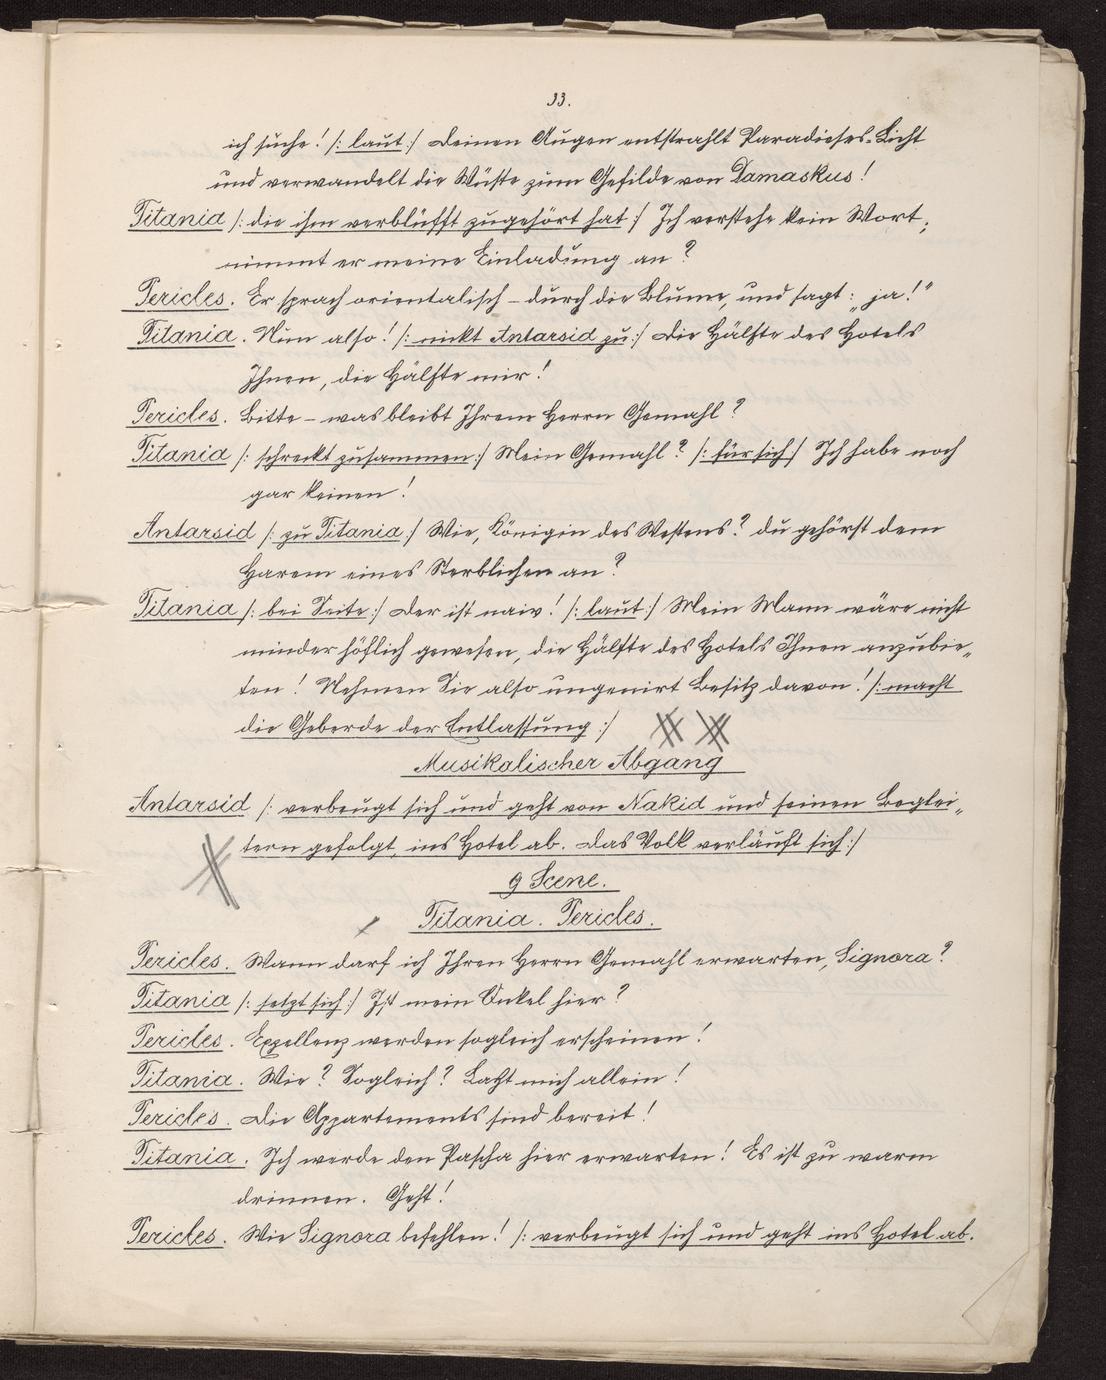 33.
ich suche! /: laut :/ Deinen Augen entstrahlt Paradieses-Licht
und verwandelt die Wüste zum Gefilde von Damaskus!
Titania /: die ihm verblüfft zugehört hat :/ Ich verstehe kein Wort;
nimmt er meine Einladung an?
Pericles. Er sprach orientalisch – durch die Blume, und sagt: „ja!"
Titania. Nun also! /: nickt Antarsid zu :/ Die Hälfte des Hotels
Ihnen, die Hälfte mir!
Pericles. Bitte – was bleibt Ihrem Herrn Gemahl?
Titania /: schreckt zusammen :/ Mein Gemahl? /: für sich :/ Ich habe noch
gar keinen!
Antarsid /: zu Titania :/ Wie, Königin des Westens? du gehörst dem
Harem eines Sterblichen an?
Titania /: bei Seite :/ Der ist naiv! /: laut :/ Mein Mann wäre nicht
minder höflich gewesen, die Hälfte des Hotels Ihnen anzubie„
ten! Nehmen Sie also ungenirt Besitz davon! /: macht
die Geberde der Entlassung :/
Musikalischer Abgang
Antarsid /: verbeugt sich und geht von Nakid und seinen Beglei„
tern gefolgt, ins Hotel ab. Das Volk verläuft sich :/
9 Scene.
Titania. Pericles.
Pericles. Wann darf ich Ihren Herrn Gemahl erwarten, Signora?
Titania /: setzt sich :/ Ist mein Onkel hier?
Pericles. Exzellenz werden sogleich erscheinen!
Titania. Wie? Sogleich? Laßt mich allein!
Pericles. Die Appartements sind bereit!
Titania. Ich werde den Pascha hier erwarten! Es ist zu warm
drinnen. Geht!
Pericles. Wie Signora befehlen! /: verbeugt sich und geht ins Hotel ab.